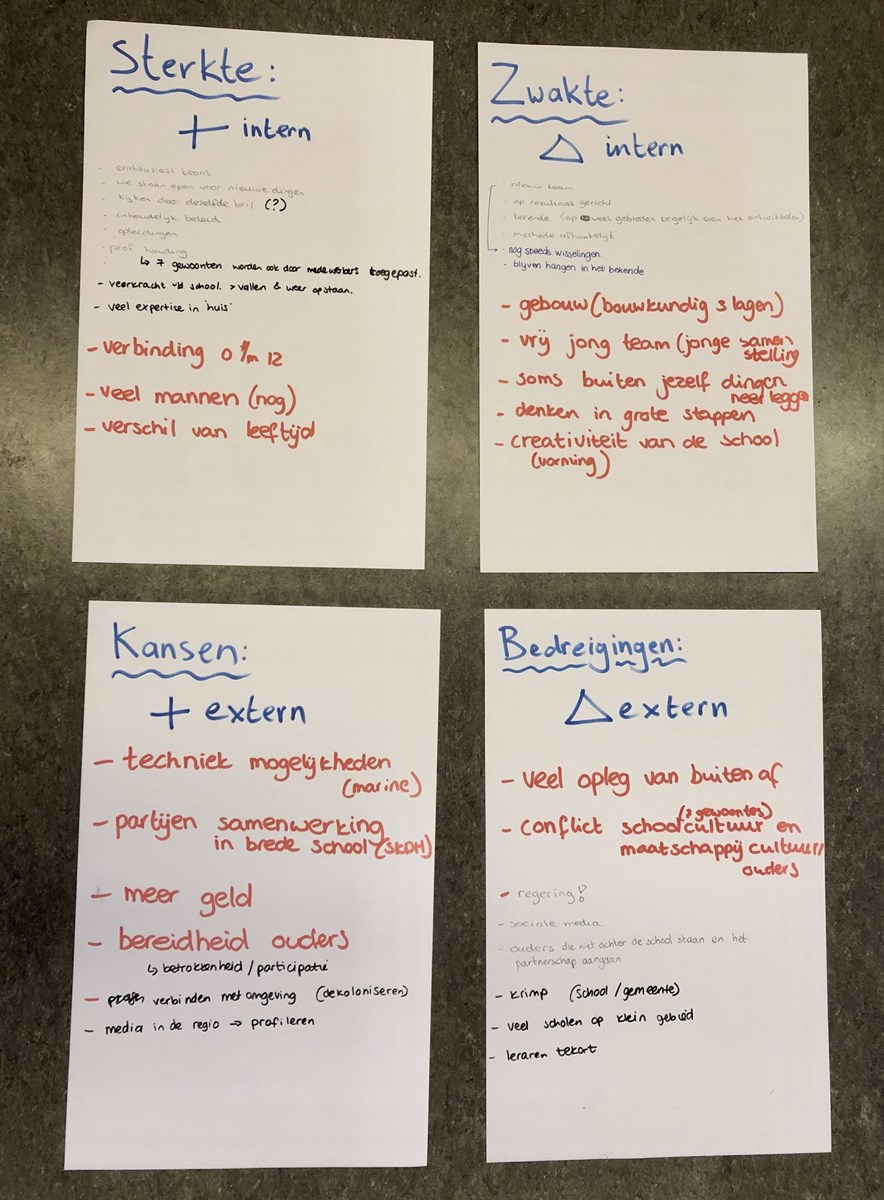 Sterkte:
+ intern
- enthousiast team
- we staan open voor nieuwe dingen
- kijken door dezelfde bril (?)
- inhoudelijk beleid
- opleidingen
- prof houding
↳ 7 gewoonten worden ook door medewerkers toegepast.
- veerkracht v/d school. > vallen & weer opstaan.
- veel expertise in 'huis'
- verbinding 0 t/m 12
- veel mannen (nog)
- verschil van leeftijd
Zwakte:
△ intern
- nieuw team
- op resultaat gericht
- lerende (op veel gebieden tegelijk aan het ontwikkelen)
- methode afhankelijk
nog steeds wisselingen.
- blijven hangen in het bekende
- gebouw (bouwkundig 3 lagen)
- vrij jong team (jonge samen
stelling
- soms buiten jezelf dingen
neerleggen
- denken in grote stappen
- creativiteit van de school
(vorming)
Kansen:
+ extern
- techniek mogelijkheden
(marine)
- partijen samenwerking
in brede school (SKDH)
- meer geld
- bereidheid ouders
↳ betrokkenheid / participatie
- verbinden met omgeving (dekoloniseren)
- media in de regio → profileren
Bedreigingen:
△ extern
- veel opleg van buiten af
(7 gewoontes)
- conflict schoolcultuur en
maatschappij cultuur/
ouders
- regering!
- sociale media
- ouders die niet achter de school staan en het
partnerschap aangaan
- krimp (school / gemeente)
- veel scholen op klein gebied
- leraren tekort